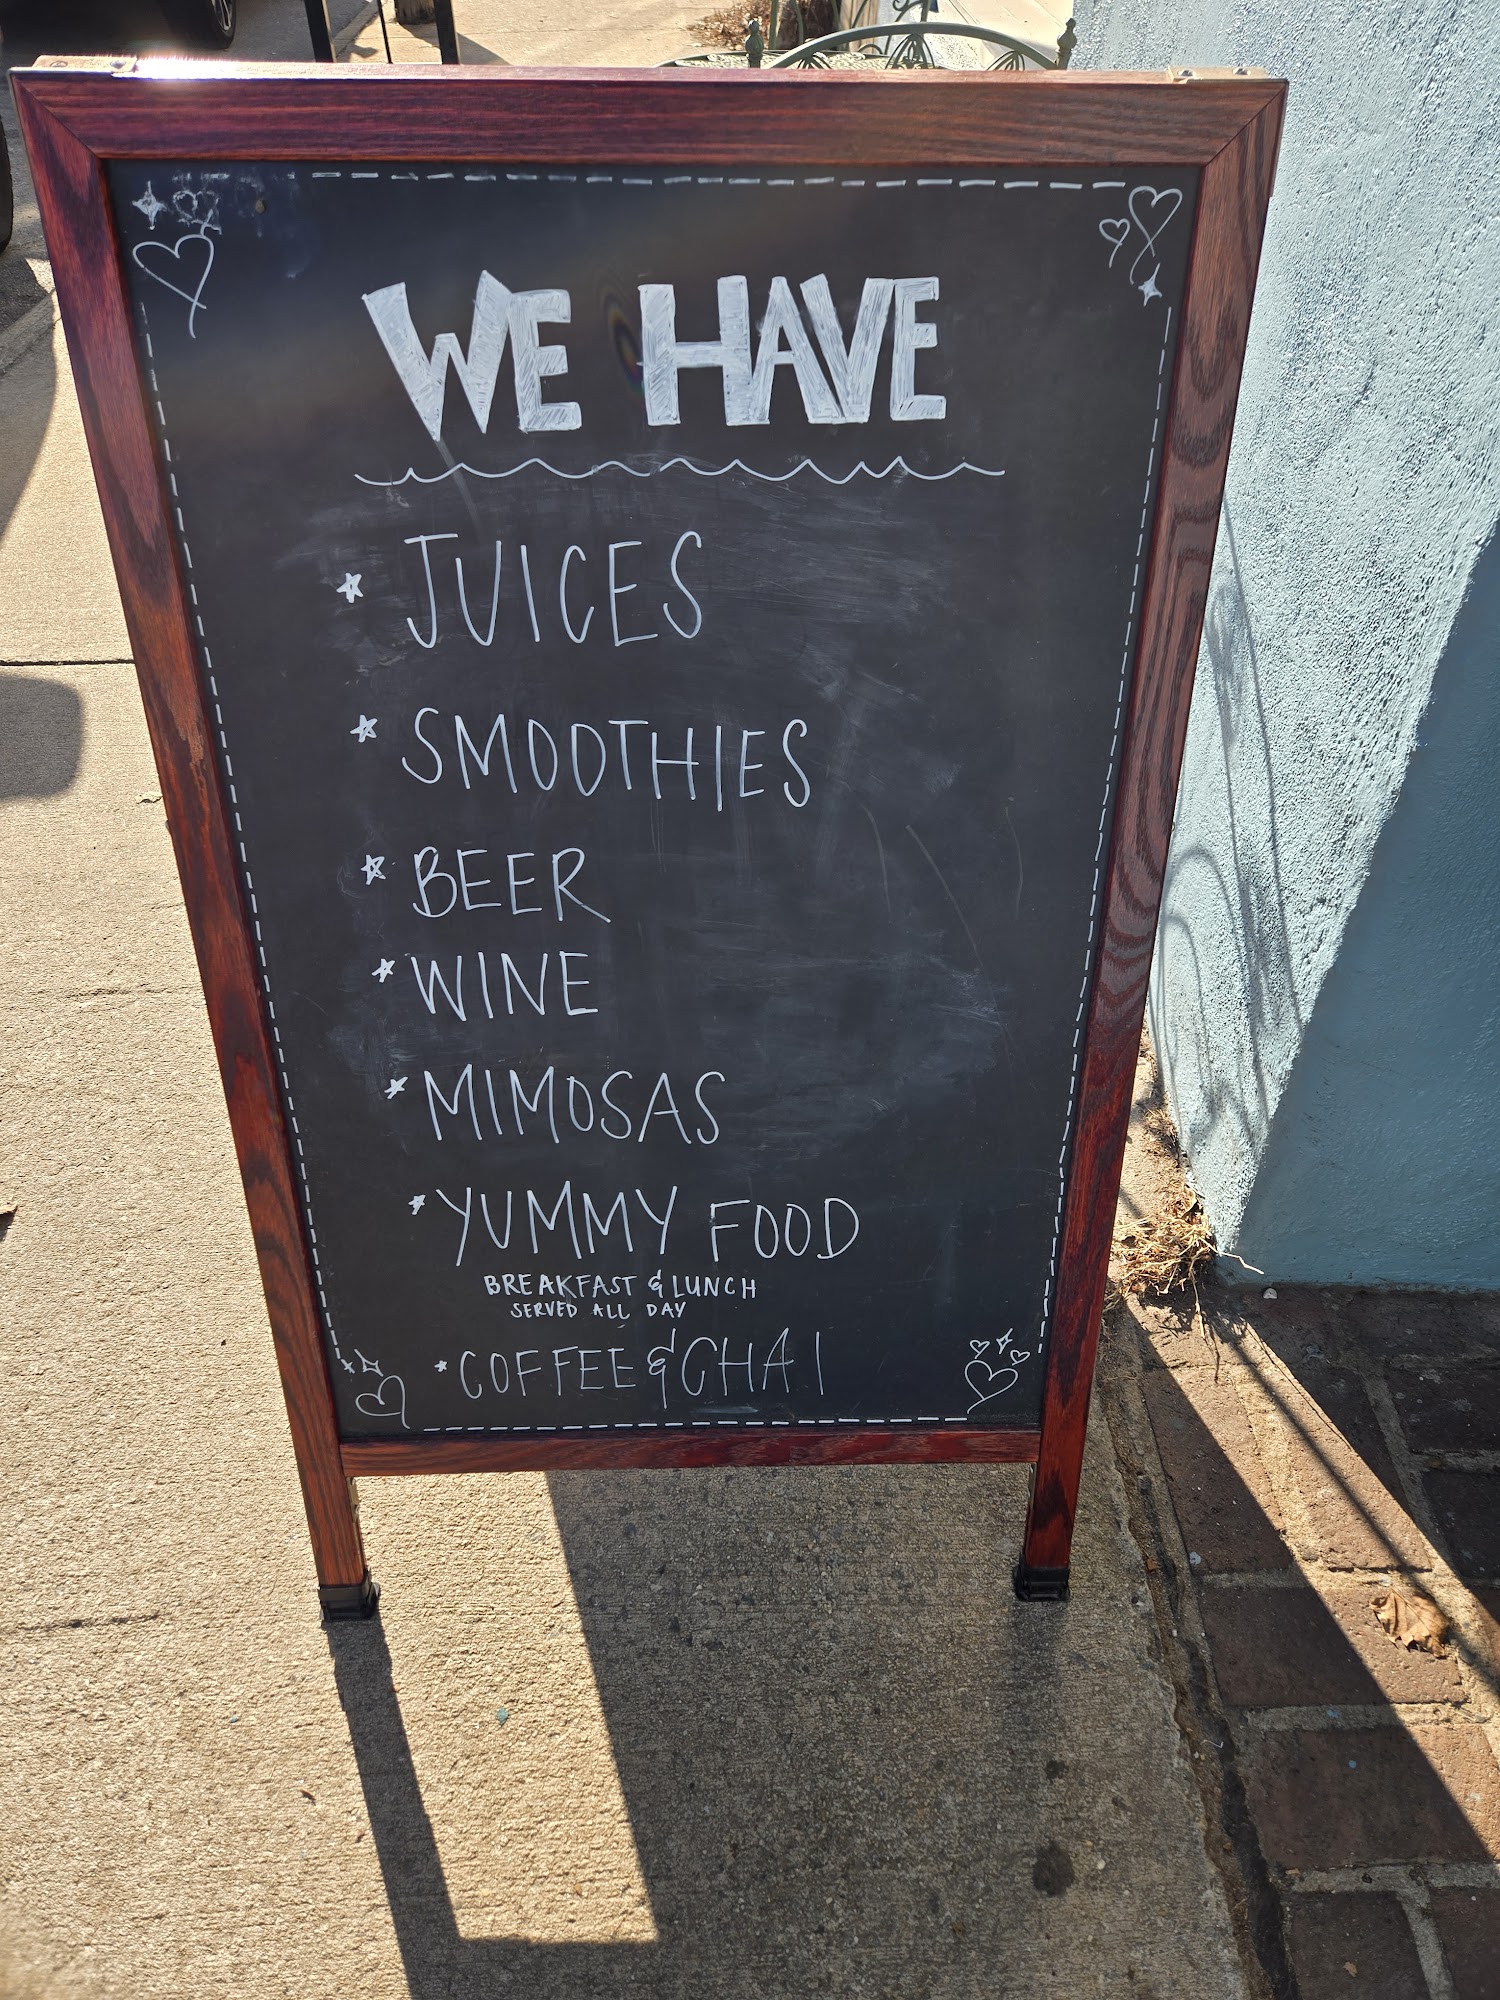 WE HAVE
* JUICES
* SMOOTHIES
* BEER
* WINE
* MIMOSAS
* YUMMY FOOD
BREAKFAST & LUNCH
SERVED ALL DAY
* COFFEE & CHAI